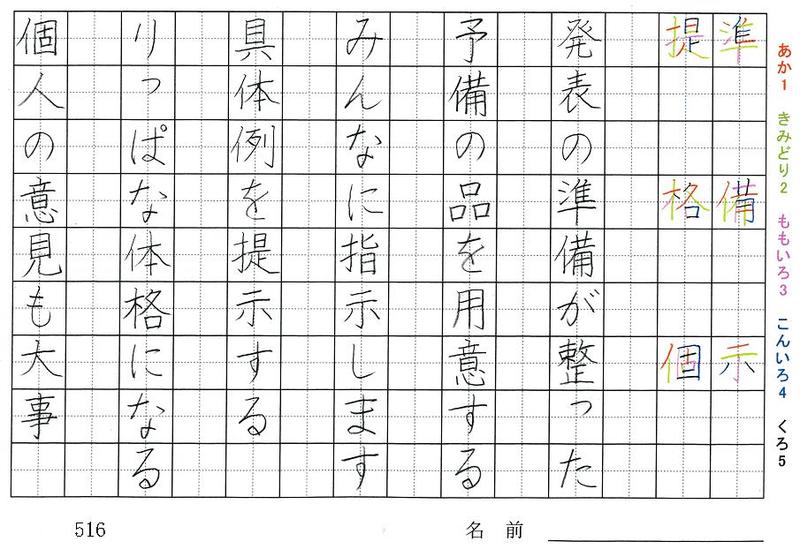 あか1 きみどり2 ももいろ3 こんいろ4 くろ5
準備示
提格個
発表の準備が整った
予備の品を用意する
みんなに指示します
具体例を提示する
りっぱな体格になる
個人の意見も大事
516
名前